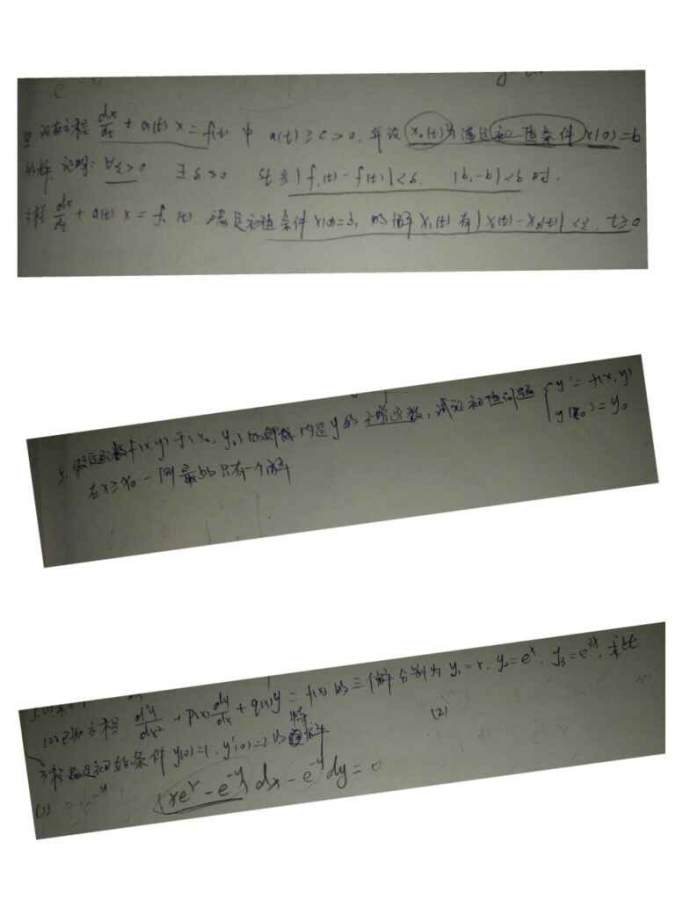 设有方程 dx/dt + a(t) x = f(t) 中 a(t) ≥ c > 0, 并设 x₀(t) 为满足初值条件 x(0) = b
的解 证明: ∀ε>0 ∃ δ>0 当 |f₁(t) - f(t)| < δ, |b₁-b| < δ 时,
方程 dx/dt + a(t) x = f₁(t) 满足初值条件 x(0)=b₁ 的解 x₁(t) 有 |x₁(t) - x₀(t)| < ε, t≥0
函数 f(x,y) 于 (x₀, y₀) 的邻域内是 y 的 函数, 试证初值问题 { y' = f(x,y) y(x₀) = y₀
在 x≥x₀ 一侧最多只有一个解
方程 d²y/dx² + p(x) dy/dx + q(x)y = f(x) 的三个解分别为 y₁=x, y₂=eˣ, y₃=e²ˣ, 求此
方程满足初始条件 y(0)=1, y'(0)=3 的特解
(1) (2)
(xeˣ - e⁻ʸ) dx - e⁻ʸ dy = 0